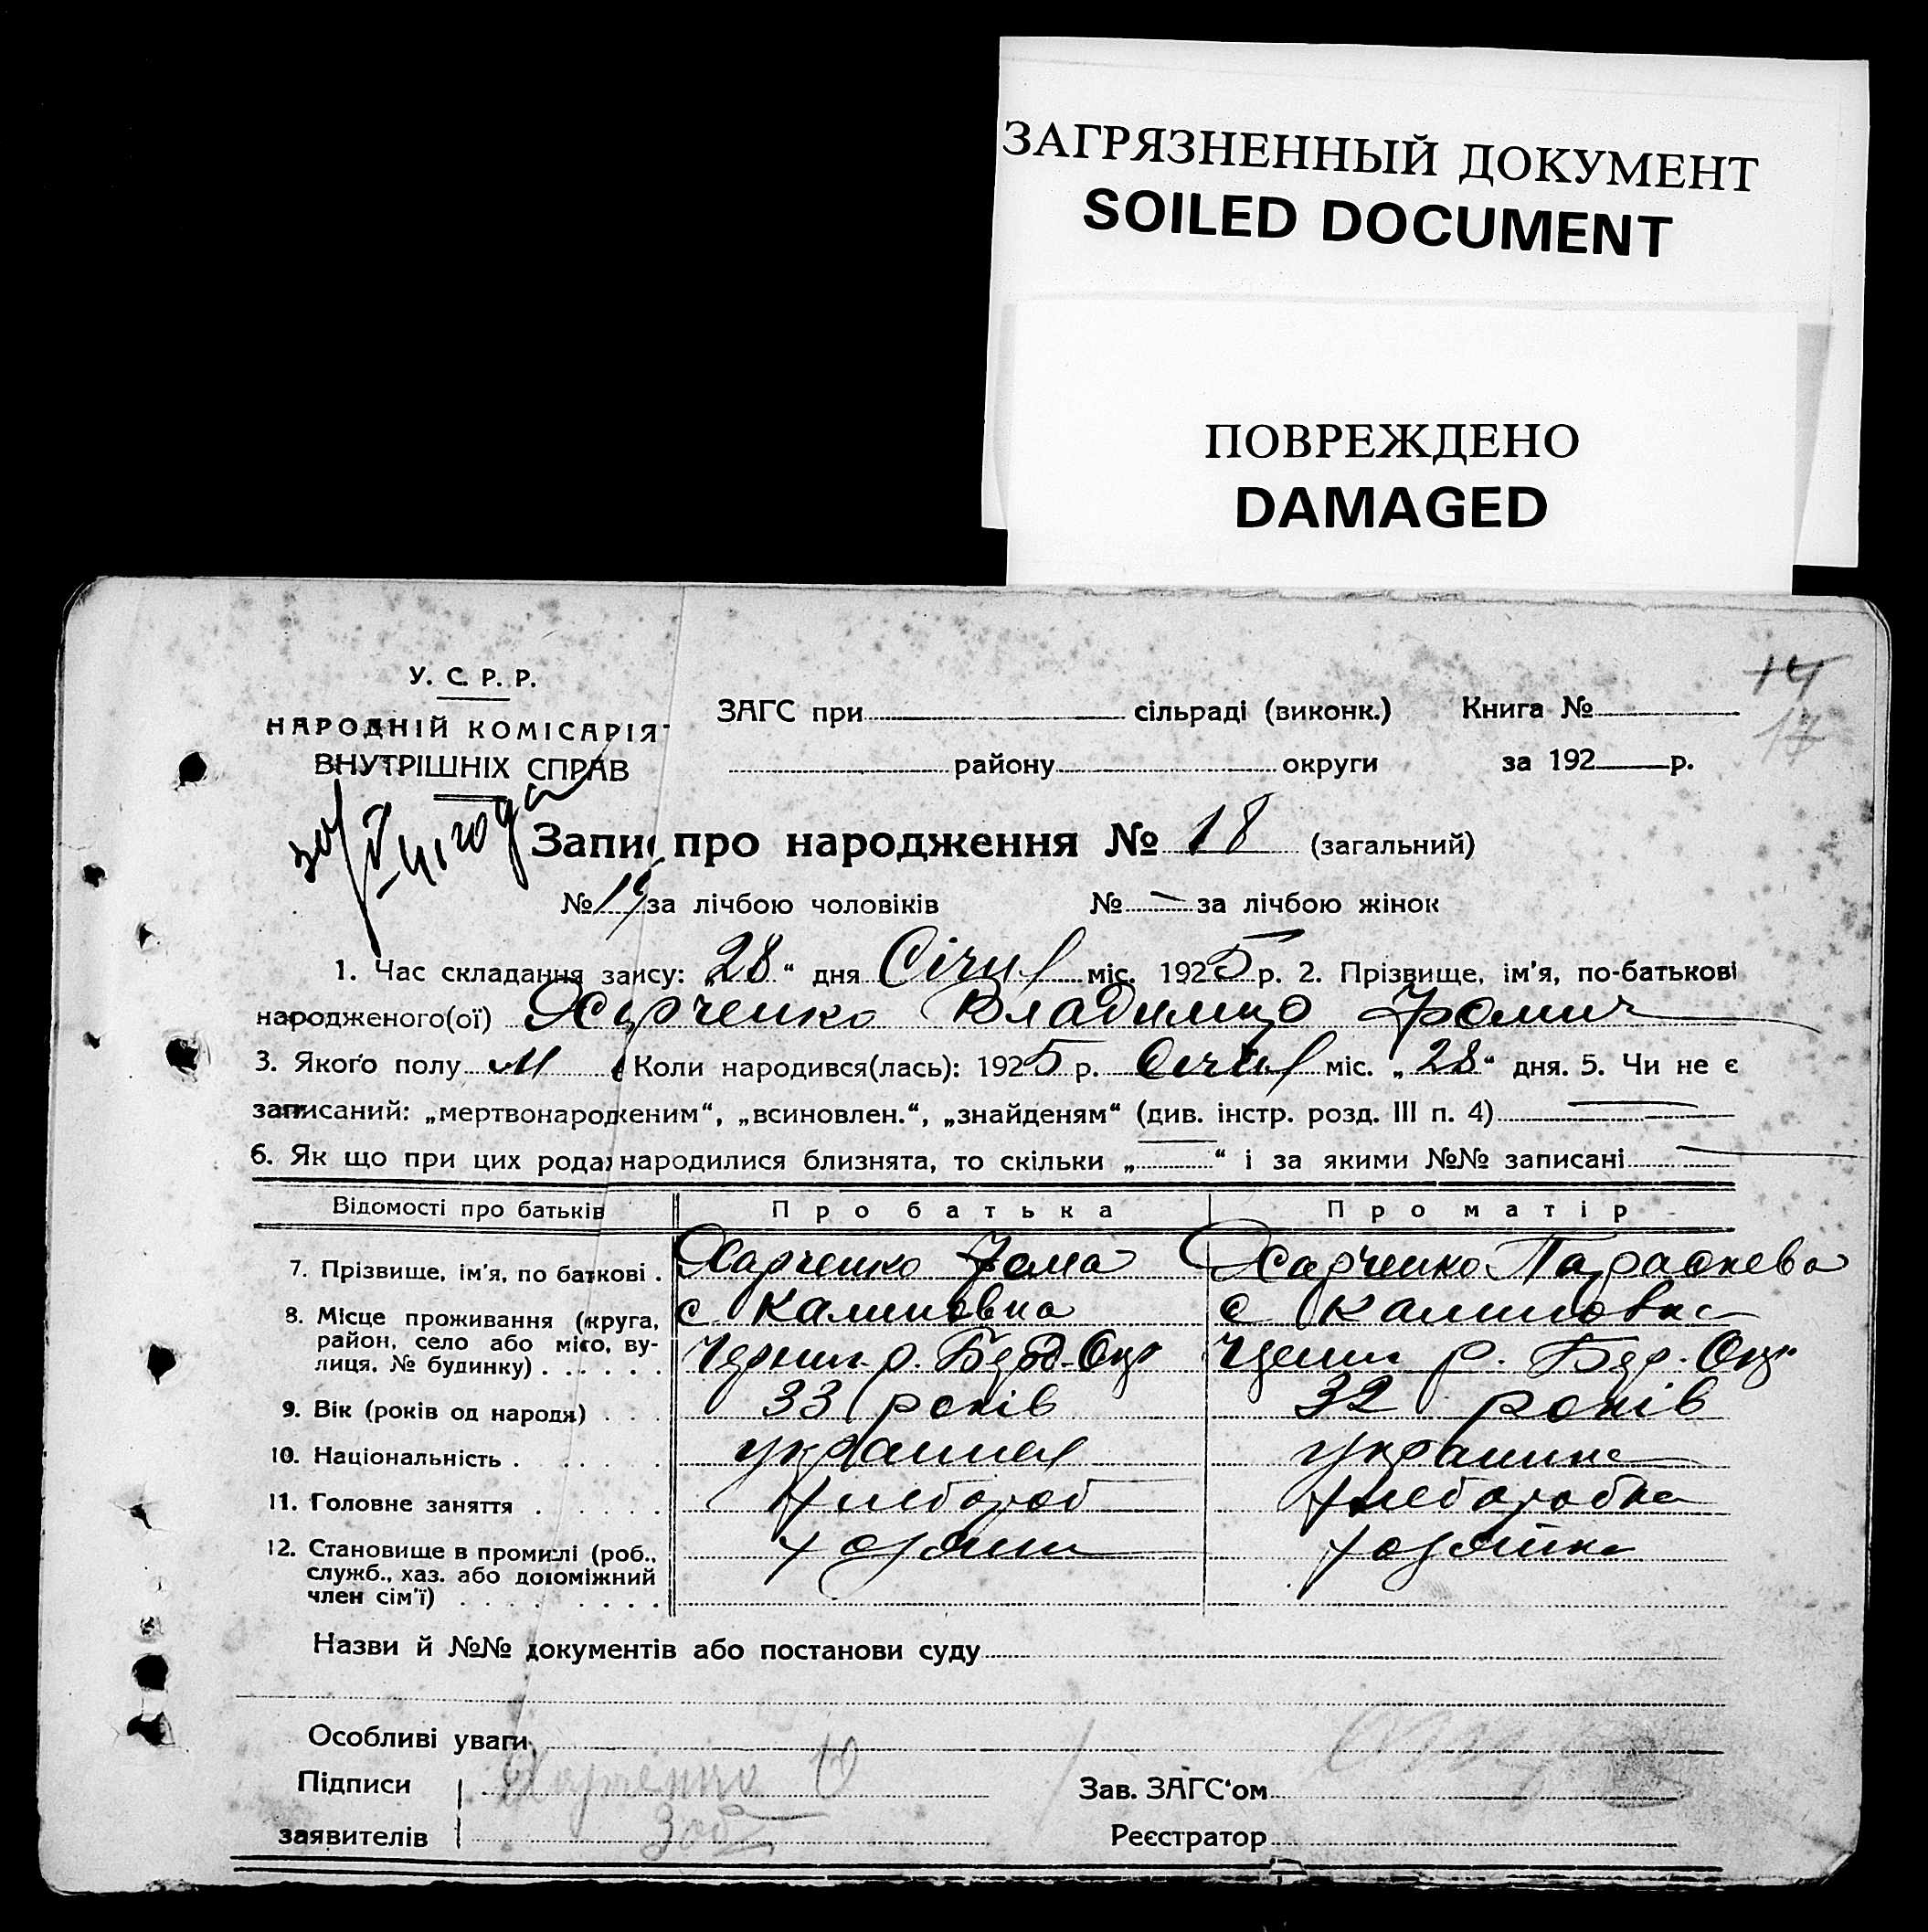 ЗАГРЯЗНЕННЫЙ ДОКУМЕНТ
SOILED DOCUMENT
ПОВРЕЖДЕНО
DAMAGED
У. С. Р. Р.
НАРОДНІЙ КОМІСАРІЯ
ВНУТРІШНІХ СПРАВ
ЗАГС при сільраді (виконк.) Книга № 14
району округи за 192 р.
Запис про народження № 18 (загальний)
№ за лічбою чоловіків № – за лічбою жінок
1. Час складання запису: „28“ дня Січня міс. 1925 р. 2. Прізвище, ім'я, по-батькові
народженого(ої) Харченко Владимир Фомич
3. Якого полу М Коли народився(лась): 1925 р. Січня міс. „28“ дня. 5. Чи не є
записаний: „мертвонародженим“, „всиновлен.“, „знайденям“ (див. інстр. розд. III п. 4) —
6. Як що при цих родах народилися близнята, то скільки „—“ і за якими №№ записані —
Відомості про батьків Про батька Про матір
7. Прізвище, ім'я, по батькові . Харченко Фома Харченко Параскева
8. Місце проживання (округа, с Калиновка с Калиновка
район, село або місто, ву-
лиця, № будинку) . . . . . . р. Берд. Окр р. Бер. Окр.
9. Вік (років од народя) . . . 33 років 32 років
10. Національність . . . . . українец українка
11. Головне заняття . . . . . хлібороб хлеборобка
12. Становище в промислі (роб., хозяин хозяйка
служб., хаз. або допоміжний
член сім'ї) . . . . . . . . .
Назви й №№ документів або постанови суду
Особливі уваги
Підписи Харченко Зав. ЗАГС'ом
заявителів Реєстратор